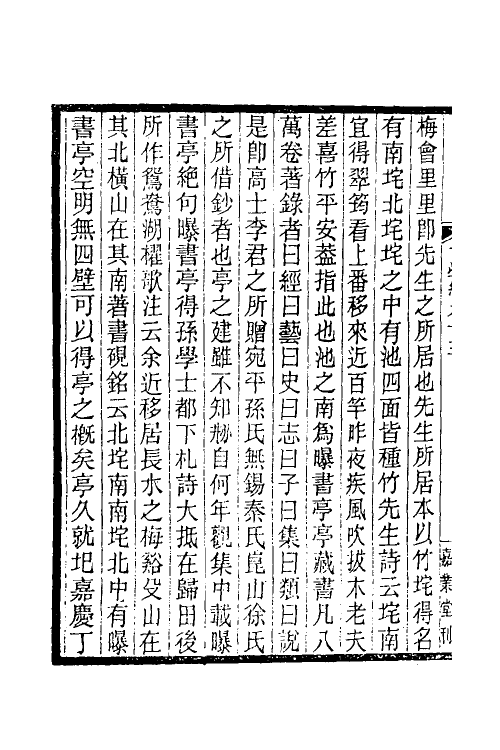 梅會里里卽先生之所居也先生所居本以竹垞得名
有南垞北垞垞之中有池四面皆種竹先生詩云垞南
宜得翠筠看上番移來近百竿昨夜疾風吹拔木老夫
差喜竹平安葢指此也池之南爲曝書亭亭藏書凡八
萬卷著錄者曰經曰藝曰史曰志曰子曰集曰類曰說
是卽高士李君之所贈宛平孫氏無錫秦氏崑山徐氏
之所借鈔者也亭之建雖不知刱自何年觀集中載曝
書亭絕句曝書亭得孫學士都下札詩大抵在歸田後
所作鴛鴦湖櫂歌注云余近移居長水之梅谿殳山在
其北橫山在其南著書硯銘云北垞南南垞北中有曝
書亭空明無四壁可以得亭之槪矣亭久就圮嘉慶丁
嘉業堂刊